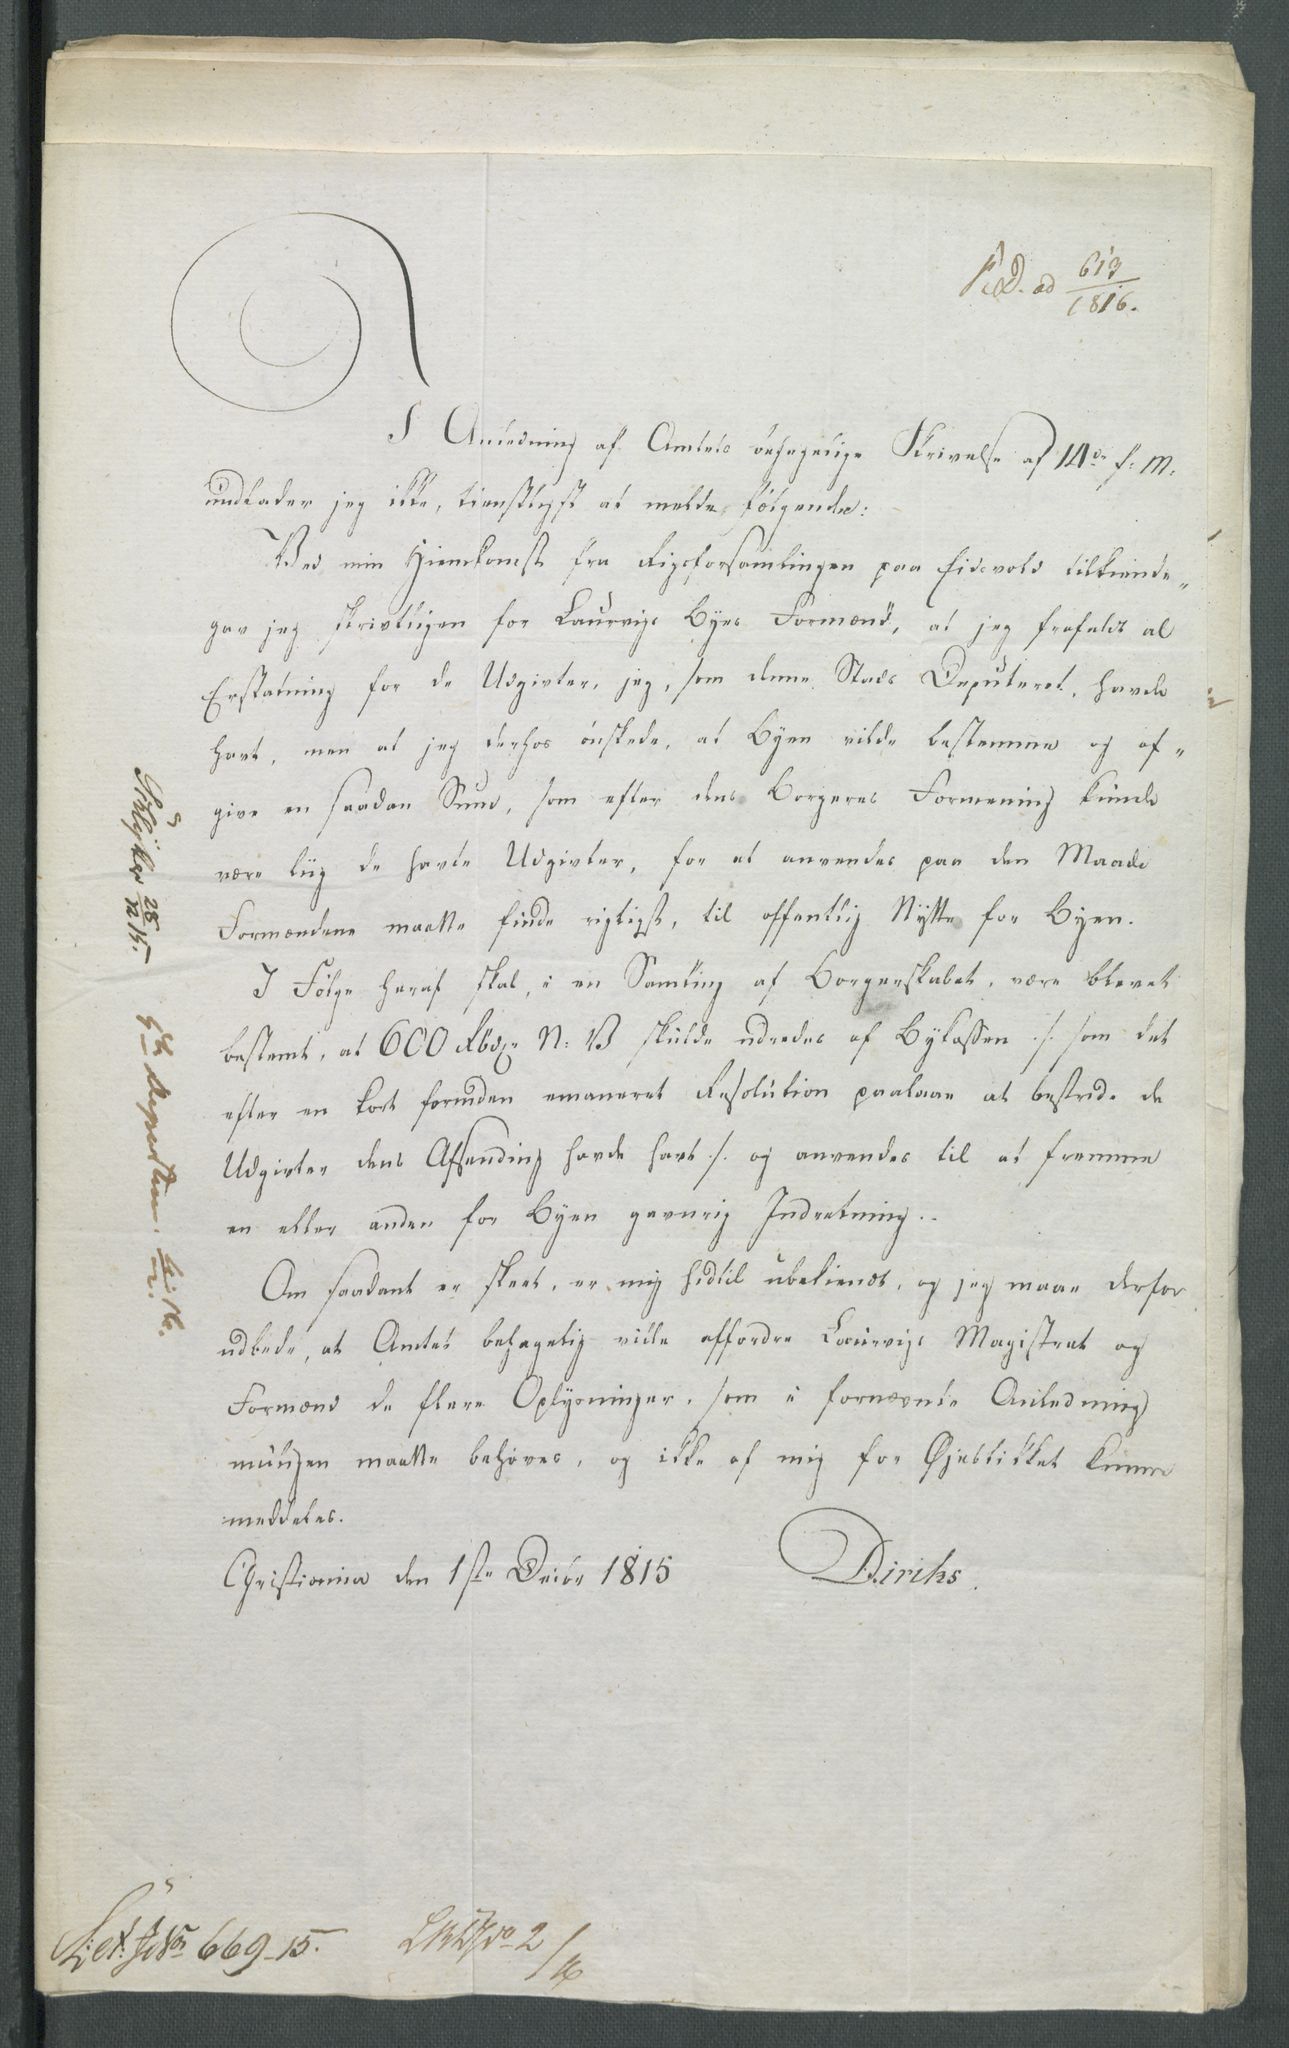 ad 613
1816.
I Anledning af Amtets behagelige Skrivelse af 14de f: M:
undlader jeg ikke, tienstligst at melde følgende:
Ved min Hiemkomst fra Rigsforsamlingen paa Eidsvold tilkiende-
gav jeg skrivtligen for Laurvigs Byes Formænd, at jeg frafaldt al
Erstatning for de Udgivter, jeg, som denne Stads Deputeret, havde
havt, men at jeg derhos ønskede, at Byen vilde bestemme og af-
give en saadan Sum, som efter dens Borgeres Formening kunde
være liig de havte Udgivter, for at anvendes paa den Maade
Formændene maatte finde rigtigst, til offentlig Nytte for Byen.
I Følge heraf skal, i en Samling af Borgerskabet, være blevet
bestemt, at 600 Rbdr N: V skulde udredes af Bykassen ./. som det
efter en kort forinden emaneret Resolution paalaae at bestride de
Udgivter dens Afsending havde havt ./. og anvendes til at fremme
en eller anden for Byen gavnrig Indretning.
Om saadant er skeet, er mig hidtil ubekiendt, og jeg maae derfor
udbede, at Amtet behagelig ville affordre Laurvigs Magistrat og
Formænd de flere Oplysninger, som i fornævnte Anledning
muligen maatte behøves, og ikke af mig for Øjeblikket kunne
meddeles.
Christiania den 1ste Decbr 1815 Diriks.
28/12 15.
5te Departem. 4/1 16.
669-15.
2/16